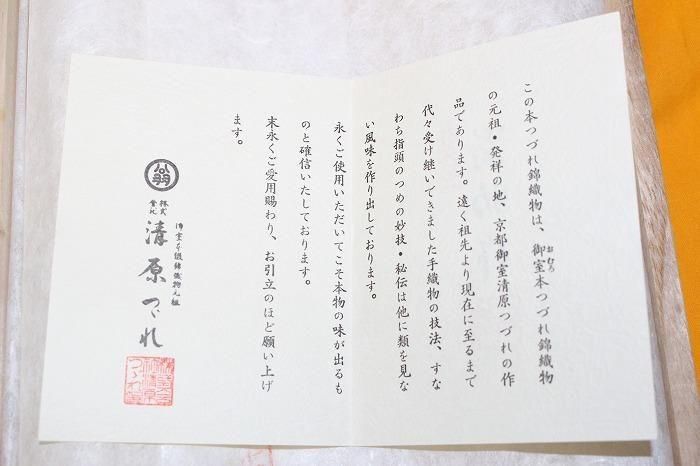 この本つづれ錦織物は、御室本つづれ錦織物
おむろ
の元祖・発祥の地、京都御室清原つづれの作
品であります。遠く祖先より現在に至るまで
代々受け継いできました手織物の技法、すな
わち指頭のつめの妙技・秘伝は他に類を見な
い風味を作り出しております。
永くご使用いただいてこそ本物の味が出るも
のと確信いたしております。
末永くご愛用賜わり、お引立のほど願い上げ
ます。
御室本綴錦織物元祖
株式
會社
清原つづれ